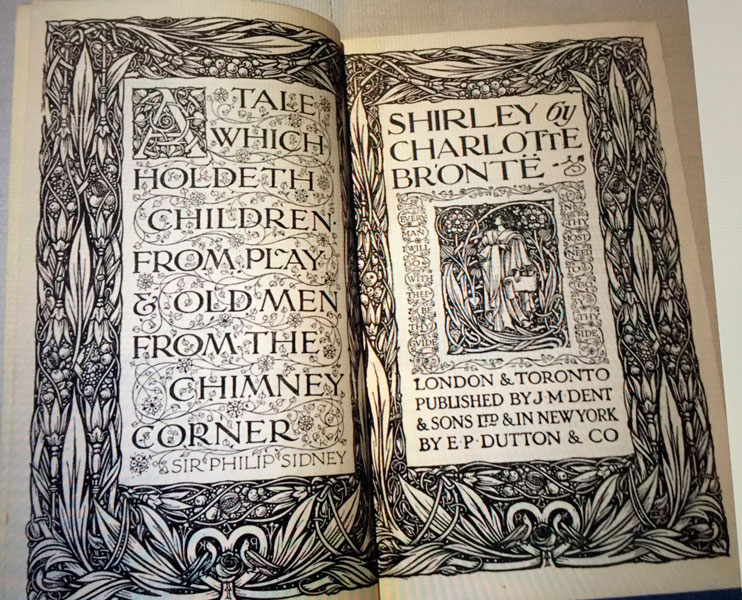 A TALE
WHICH
HOLDETH
CHILDREN
FROM PLAY
& OLD MEN
FROM THE
CHIMNEY
CORNER
SIR PHILIP SIDNEY
SHIRLEY by
CHARLOTTE
BRONTË
EVERY
MAN I
WILL
GO
WITH
THEE
& BE
THY
GVIDE
IN THY MOST NEED TO GO BY THY SIDE
LONDON & TORONTO
PUBLISHED BY J·M·DENT
& SONS LTD & IN NEW YORK
BY E·P·DUTTON & CO